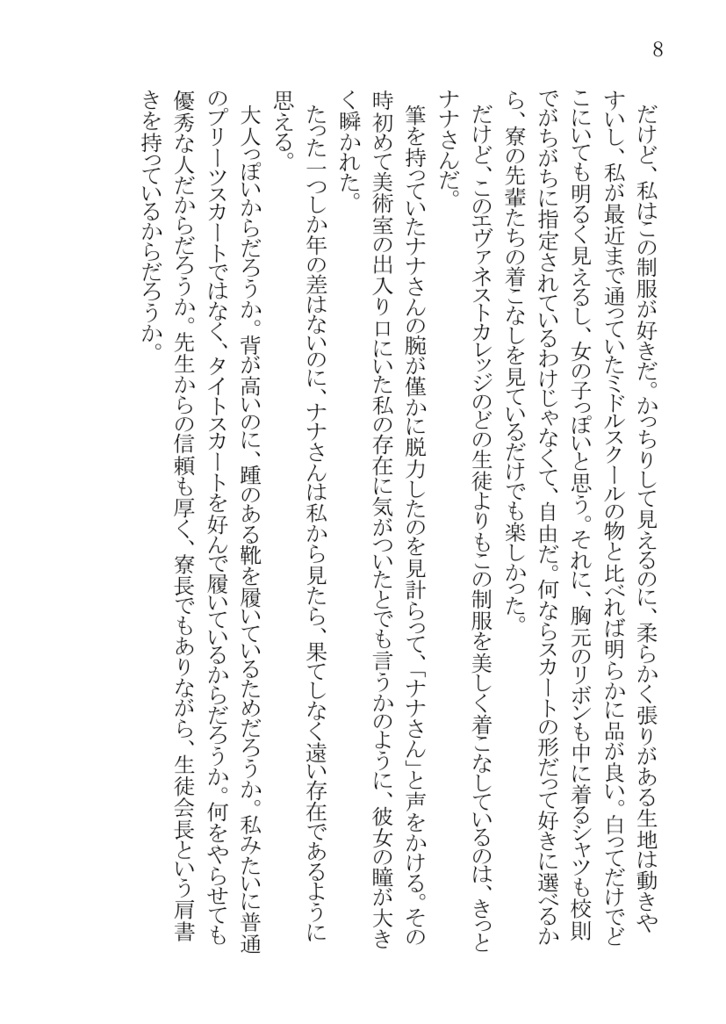 8
だけど、私はこの制服が好きだ。かっちりして見えるのに、柔らかく張りがある生地は動きや
すいし、私が最近まで通っていたミドルスクールの物と比べれば明らかに品が良い。白ってだけでど
こにいても明るく見えるし、女の子っぽいと思う。それに、胸元のリボンも中に着るシャツも校則
でがちがちに指定されているわけじゃなくて、自由だ。何ならスカートの形だって好きに選べるか
ら、寮の先輩たちの着こなしを見ているだけでも楽しかった。
だけど、このエヴァネストカレッジのどの生徒よりもこの制服を美しく着こなしているのは、きっと
ナナさんだ。
筆を持っていたナナさんの腕が僅かに脱力したのを見計らって、「ナナさん」と声をかける。その
時初めて美術室の出入り口にいた私の存在に気がついたとでも言うかのように、彼女の瞳が大き
く瞬かれた。
たった一つしか年の差はないのに、ナナさんは私から見たら、果てしなく遠い存在であるように
思える。
大人っぽいからだろうか。背が高いのに、踵のある靴を履いているためだろうか。私みたいに普通
のプリーツスカートではなく、タイトスカートを好んで履いているからだろうか。何をやらせても
優秀な人だからだろうか。先生からの信頼も厚く、寮長でもありながら、生徒会長という肩書
きを持っているからだろうか。